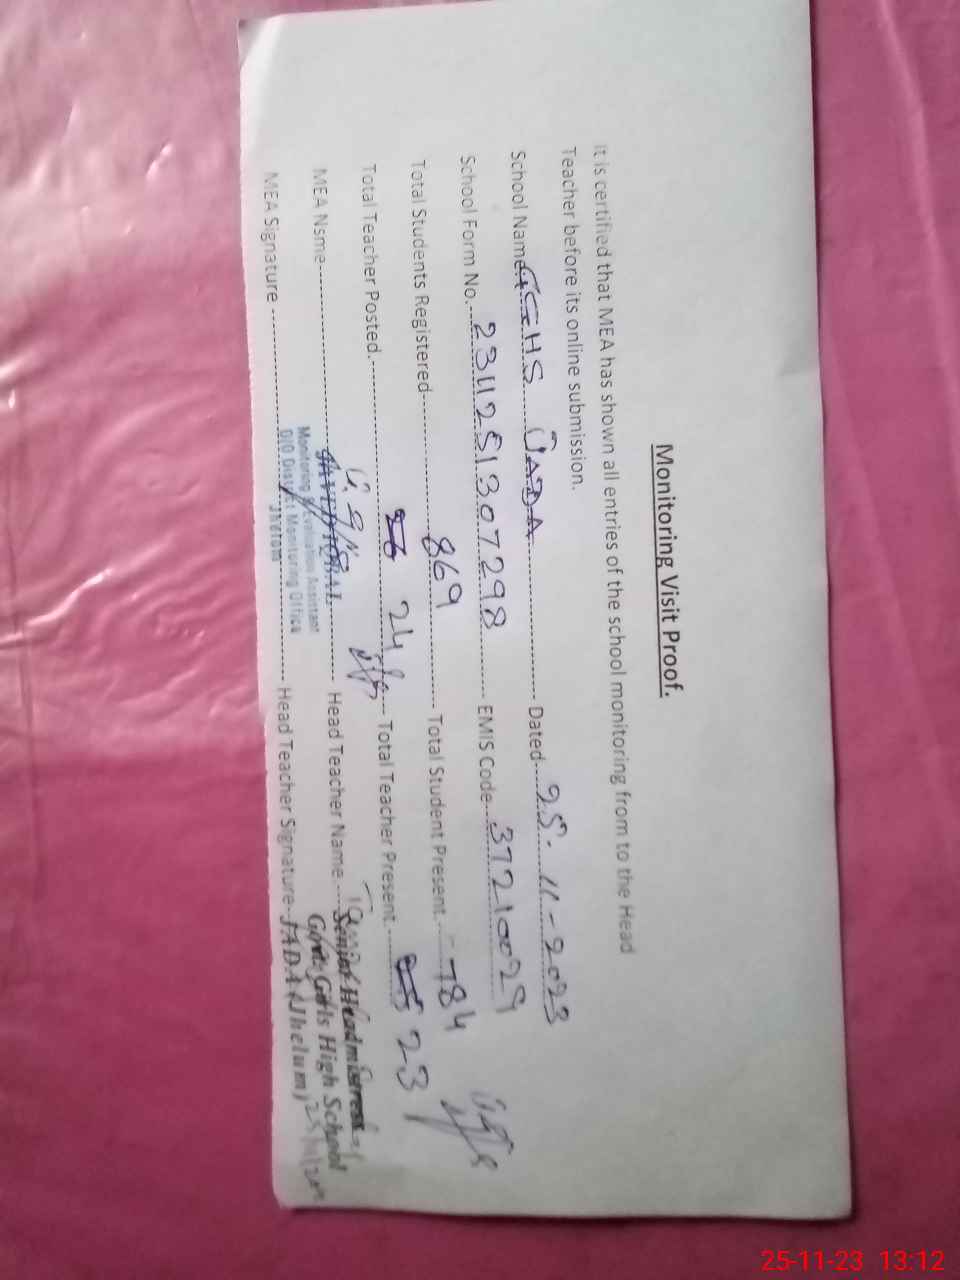 Monitoring Visit Proof.
It is certified that MEA has shown all entries of the school monitoring from to the Head
Teacher before its online submission.
School Name GGHS JADA Dated 25-11-2023
School Form No. 2311251307298 EMIS Code 37210029
Total Students Registered 869 Total Student Present 784
Total Teacher Posted. 24 Total Teacher Present 23
MEA Nsme JAVED IQBAL Head Teacher Name Senior Headmistress
Monitoring & Evaluation Assistant Govt. Girls High School
MEA Signature D/O District Monitoring Office Head Teacher Signature JADA (Jhelum)
Jhelum
25-11-23 13:12